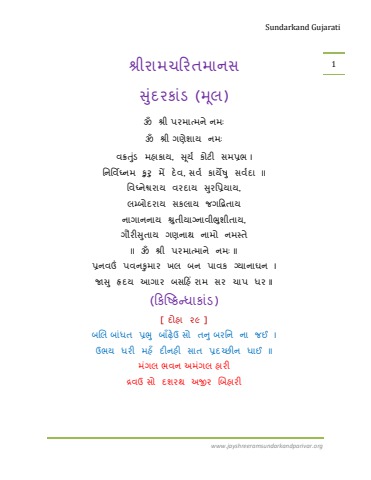 Sundarkand Gujarati
1
શ્રીરામચરિતમાનસ
સુંદરકાંડ (મૂલ)
ૐ શ્રી પરમાત્મને નમઃ
ૐ શ્રી ગણેશાય નમઃ
વક્રતુંડ મહાકાય, સૂર્ય કોટી સમપ્રભ ।
નિર્વિઘ્નમ કુરુ મેં દેવ, સર્વ કાર્યેષુ સર્વદા ॥
વિઘ્નેશ્વરાય વરદાય સુરપ્રિયાય,
લમ્બોદરાય સકલાય જગદ્વિતાય
નાગાનનાય શ્રુતીયાગ્નાવીભુશીતાય,
ગૌરીસુતાય ગણનાથ નામો નમસ્તે
॥ ૐ શ્રી પરમાત્માને નમઃ ॥
પ્રનવઉઁ પવનકુમાર ખલ બન પાવક ગ્યાનાધન ।
જાસુ હ્રદય આગાર બસહિં રામ સર ચાપ ધર ॥
(કિષ્કિન્ધાકાંડ)
[ દોહા ૨૯ ]
બલિ બાંધત પ્રભુ બાઁઢેઉ સો તનુ બરનિ ના જઈ ।
ઉભય ધરી મહઁ દીનહી સાત પ્રદચ્છીન ધાઈ ॥
મંગલ ભવન અમંગલ હારી
દ્રવઉ સો દશરથ અજીર બિહારી
www.jayshreeramsundarkandparivar.org